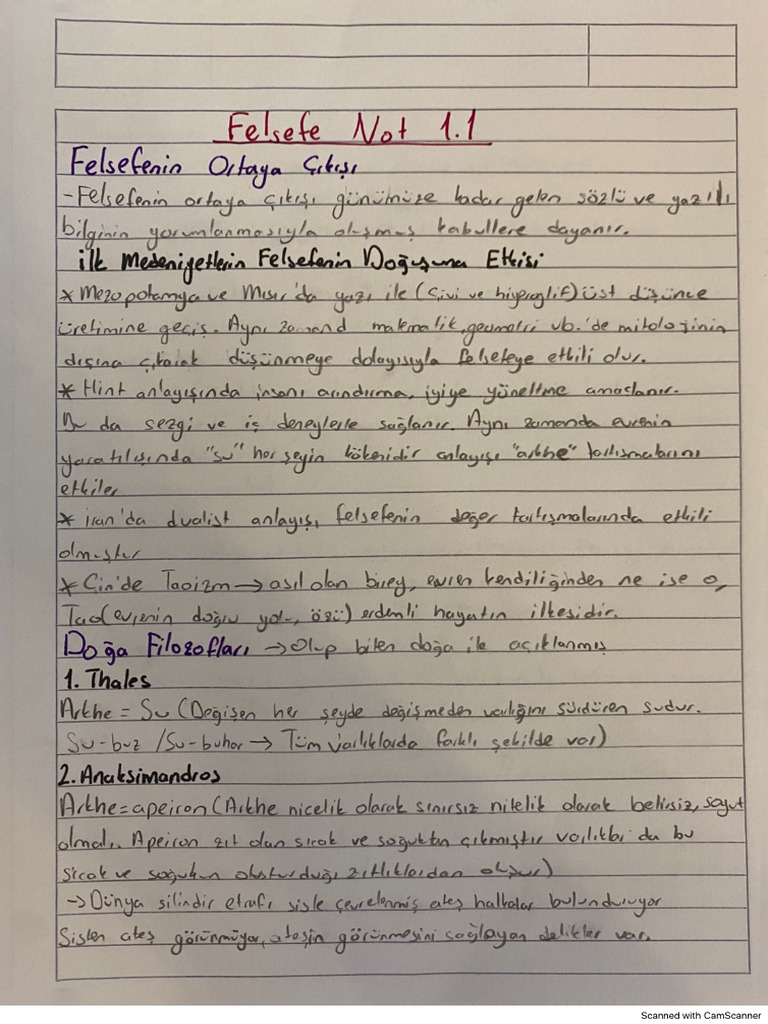 Felsefe Not 1.1
Felsefenin Ortaya Çıkışı
-Felsefenin ortaya çıkışı günümüze kadar gelen sözlü ve yazılı
bilginin yorumlanmasıyla oluşmuş kabullere dayanır.
ilk Medeniyetlerin Felsefenin Doğuşuna Etkisi
* Mezopotamya ve Mısır'da yazı ile (çivi ve hiyeroglif) üst düşünce
üretimine geçiş. Aynı zamand matematik, geometri vb.'de mitolojinin
dışına çıkarak düşünmeye dolayısıyla felsefeye etkili olur.
* Hint anlayışında insanı arındırma, iyiye yöneltme amaclanır.
Bu da sezgi ve iç deneylerle sağlanır. Aynı zamanda evrenin
yaratılışında "su" her şeyin kökenidir anlayışı "arkhe" tartışmalarını
etkiler
* iran'da dualist anlayışı, felsefenin değer tartışmalarında etkili
olmuştur
* Çin'de Taoizm → asıl olan birey, evren kendiliğinden ne ise o,
Tao(evrenin doğru yolu, özü) erdemli hayatın ilkesidir.
Doğa Filozofları → Olup biten doğa ile açıklanmış
1. Thales
Arkhe = Su (Değişen her şeyde değişmeden varlığını sürdüren sudur.
Su-buz /Su-buhar → Tüm varlıklarda farklı şekilde var)
2. Anaksimandros
Arkhe=apeiron (Arkhe nicelik olarak sınırsız nitelik olarak belirsiz, soyut
olmalı. Apeiron zıt olan sıcak ve soğuktan çıkmıştır varlıklar da bu
sıcak ve soğuğun oluşturduğu zıtlıklardan oluşur)
→ Dünya silindir etrafı sisle çevrelenmiş ateş halkalar bulunduruyor
Sisten ateş görünmüyor, ateşin görünmesini sağlayan delikler var.
Scanned with CamScanner